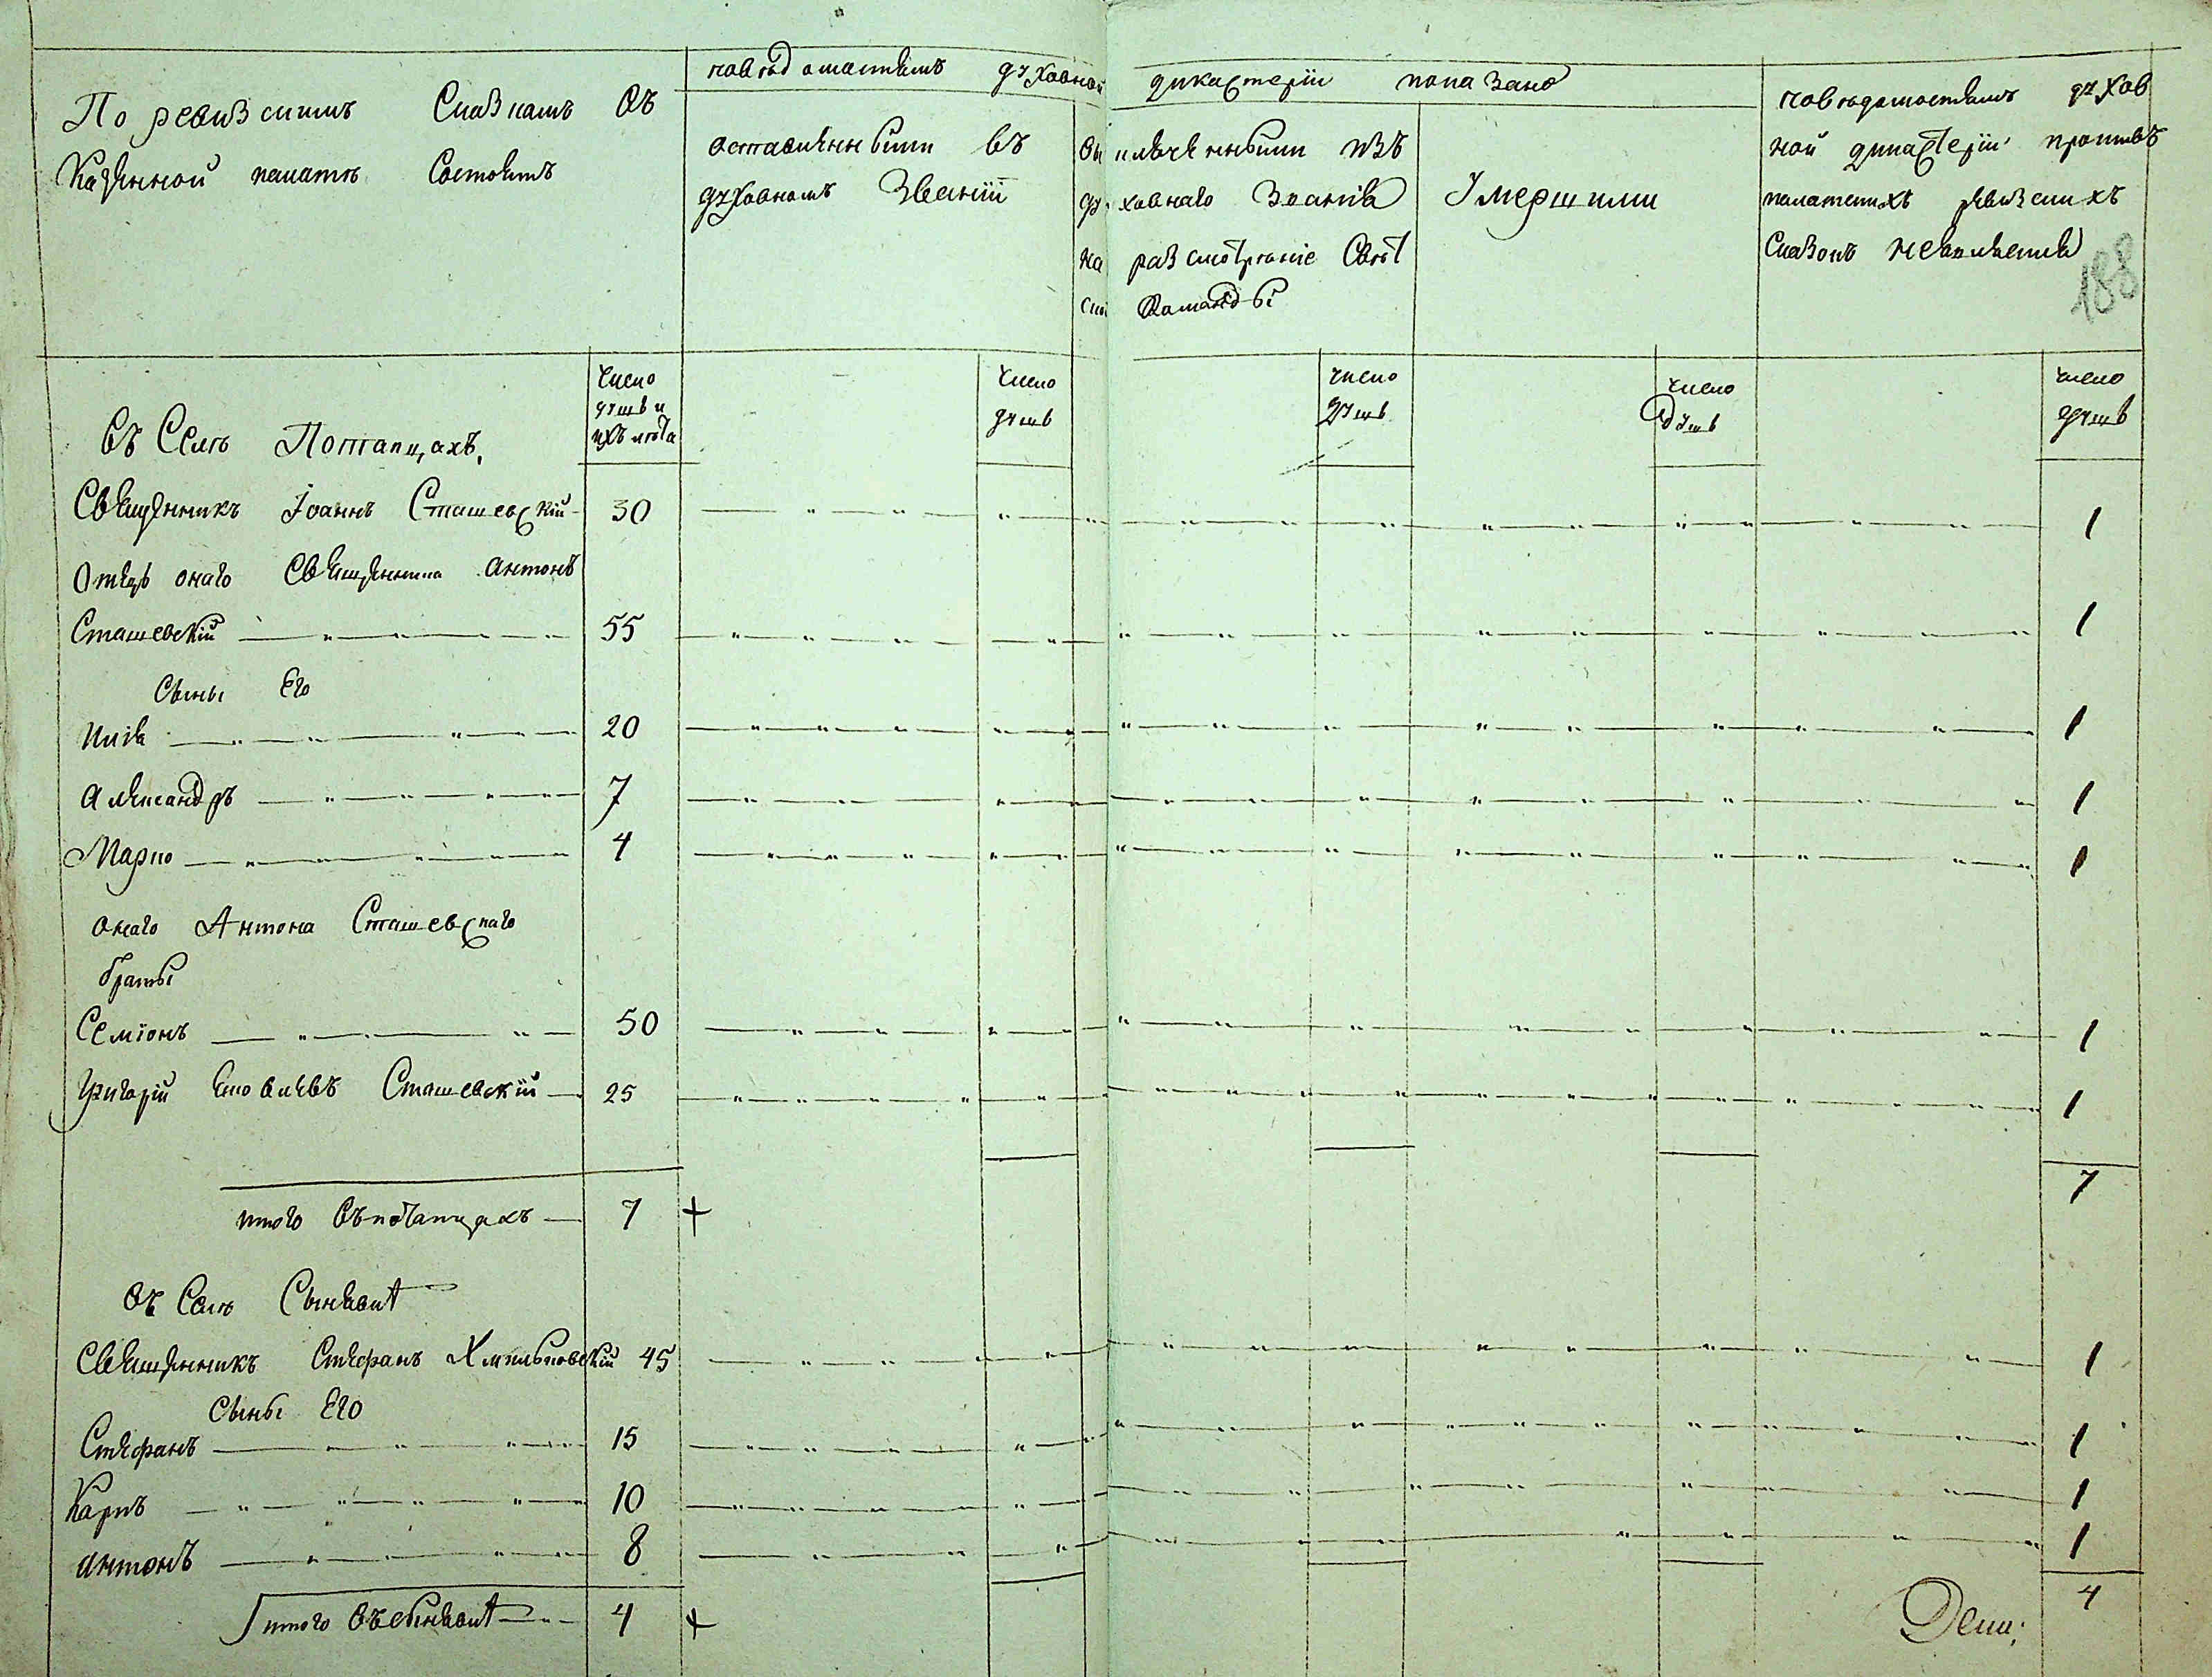 По ревизскимъ Сказкамъ Въ
Казенной палатѣ Состоитъ
по вѣдомостямъ духовной дикастеріи показано
оставленными въ
духовномъ Званіи
выключенными изъ
духовнаго Званія
на разсмотреніе Свѣт
ской Команды
Умершими
По вѣдомостямъ духов
ной дикастеріи противъ
палатскихъ ревизскихъ
Сказокъ неявляется
188
Въ Селѣ Потапцахъ,
число душъ и ихъ лѣта
число душъ
число душъ
число душъ
число душъ
Священникъ Іоаннъ Сташевскій 30 1
Отецъ онаго Священника Антонъ
Сташевскій 55 1
Сыны Его
Илія 20 1
Александръ 7 1
Марко 4 1
онаго Антона Сташевскаго
браты
Семіонъ 50 1
Григорій Сташевскій 25 1
7
итого въ потапцахъ 7 +
Въ Селѣ Сынявит
Священникъ Стефанъ Хмельновскій 45 1
Сыны Его
Стефанъ 15 1
Карпъ 10 1
Антонъ 8 1
Итого Въ сынявит 4 + 4